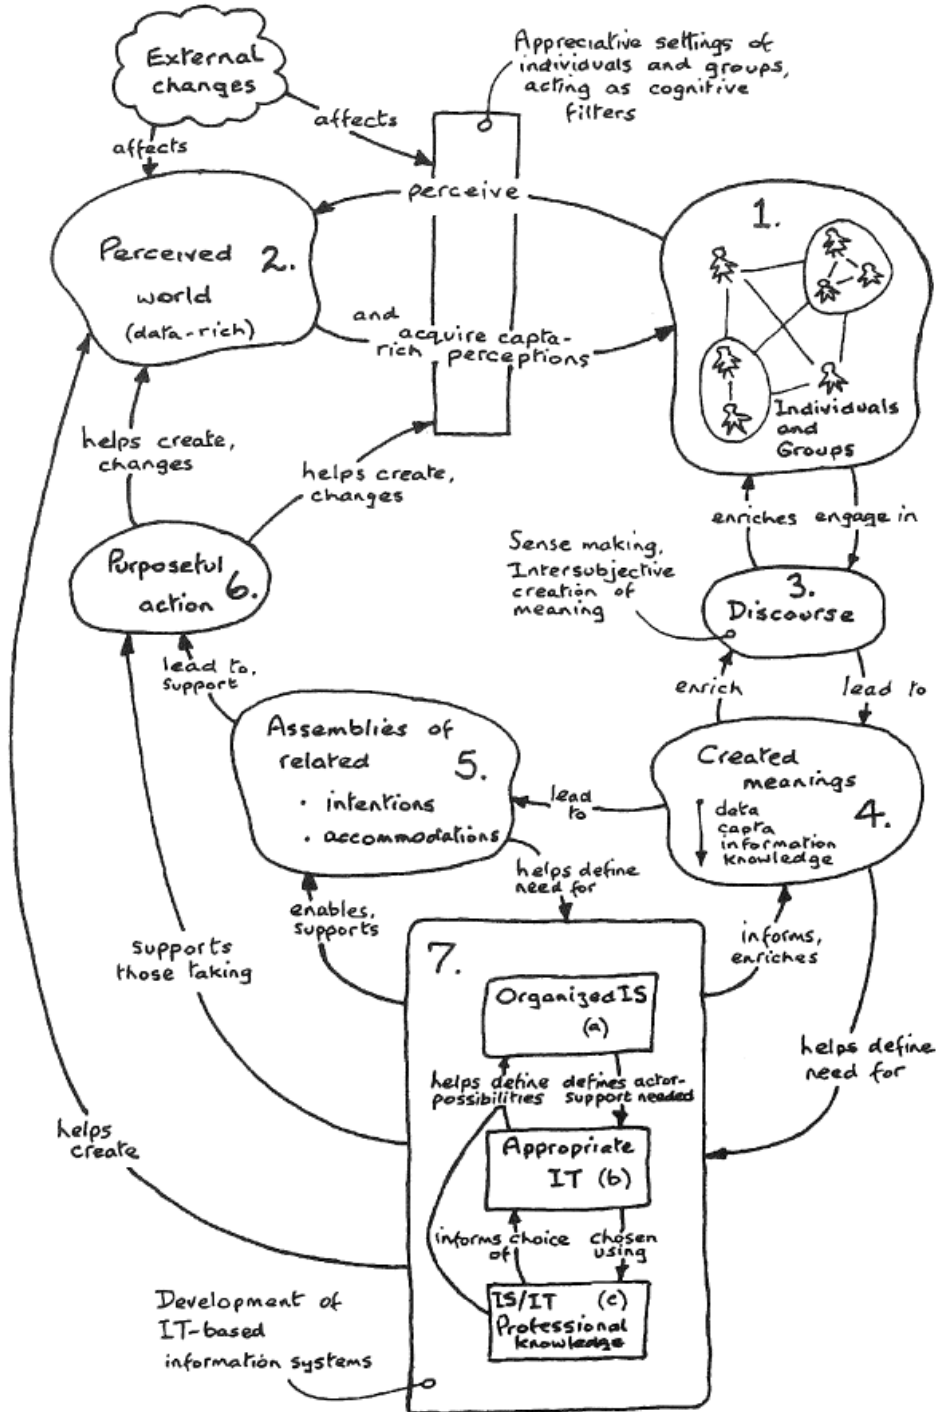 External
changes
Appreciative settings of
individuals and groups,
acting as cognitive
filters
affects
affects
perceive
Perceived
world
(data-rich)
2.
and
acquire capta-
rich perceptions
1.
Individuals
and
Groups
helps create,
changes
helps create,
changes
enriches
engage in
Sense making,
Intersubjective
creation of
meaning
3.
Discourse
Purposeful
action
6.
lead to,
support
enrich
lead to
Assemblies of
related
• intentions
• accommodations
5.
lead
to
Created
meanings
data
capta
information
knowledge
4.
helps define
need for
enables,
supports
supports
those taking
informs,
enriches
helps define
need for
7.
Organized IS
(a)
helps define
possibilities
defines actor-
support needed
Appropriate
IT (b)
informs choice
of
chosen
using
IS/IT (c)
Professional
knowledge
helps
create
Development of
IT-based
information systems